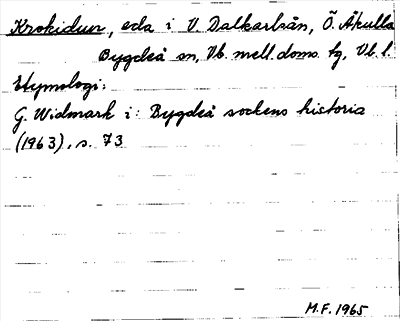 Krokidun, eda i V. Dalkarlsån, Ö. Åkulla
Bygdeå sn, Vb. mell. doms. tg, Vb. l.
Etymologi:
G. Widmark i: Bygdeå sockens historia
(1963), s. 73
M.F. 1965